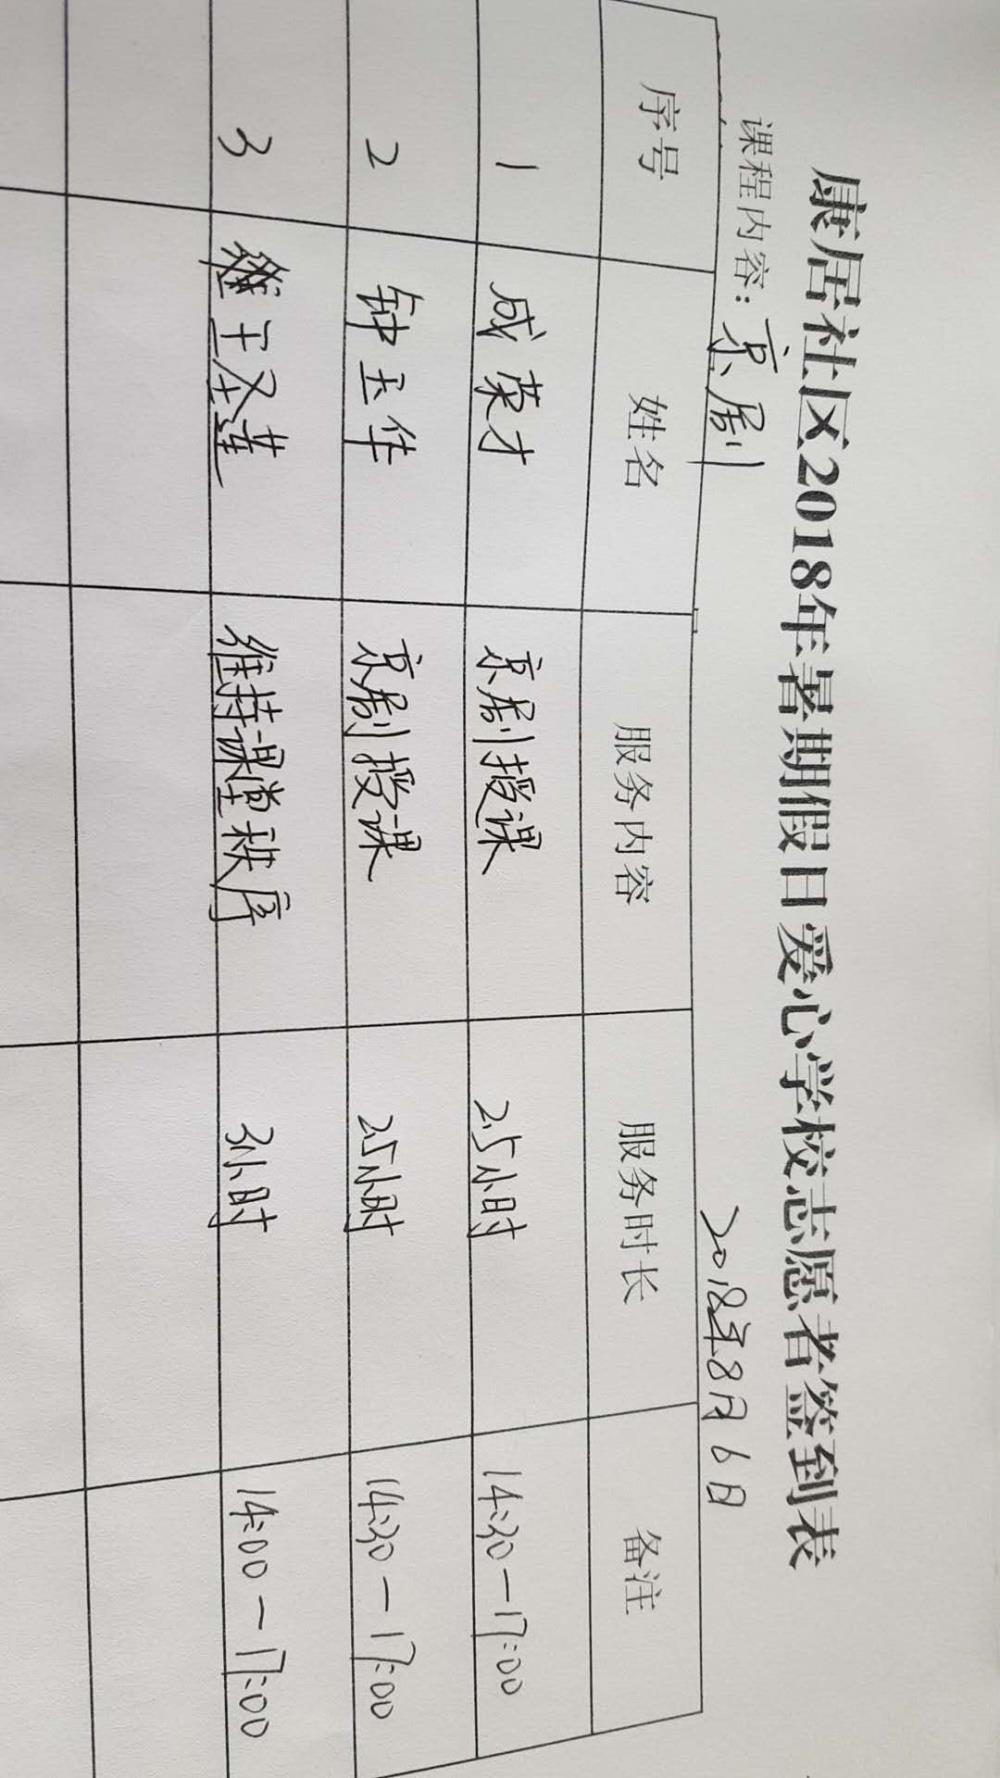 康居社区2018年暑期假日爱心学校志愿者签到表
课程内容：京剧 2018年8月6日
序号 姓名 服务内容 服务时长 备注
1 成荣才 京剧授课 2.5小时 14:30—17:00
2 钟玉华 京剧授课 2.5小时 14:30—17:00
3 王圣莲 维持课堂秩序 3小时 14:00—17:00